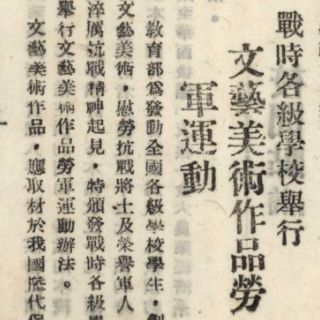 戰時各級學校舉行
文藝美術作品勞
軍運動
教育部為發動全國各級學校學生，創
文藝美術，慰勞抗戰將士及榮譽軍人
淬厲抗戰精神起見，特頒發戰時各級學
舉行文藝美術作品勞軍運動辦法。
文藝美術作品，應取材於我國歷代保